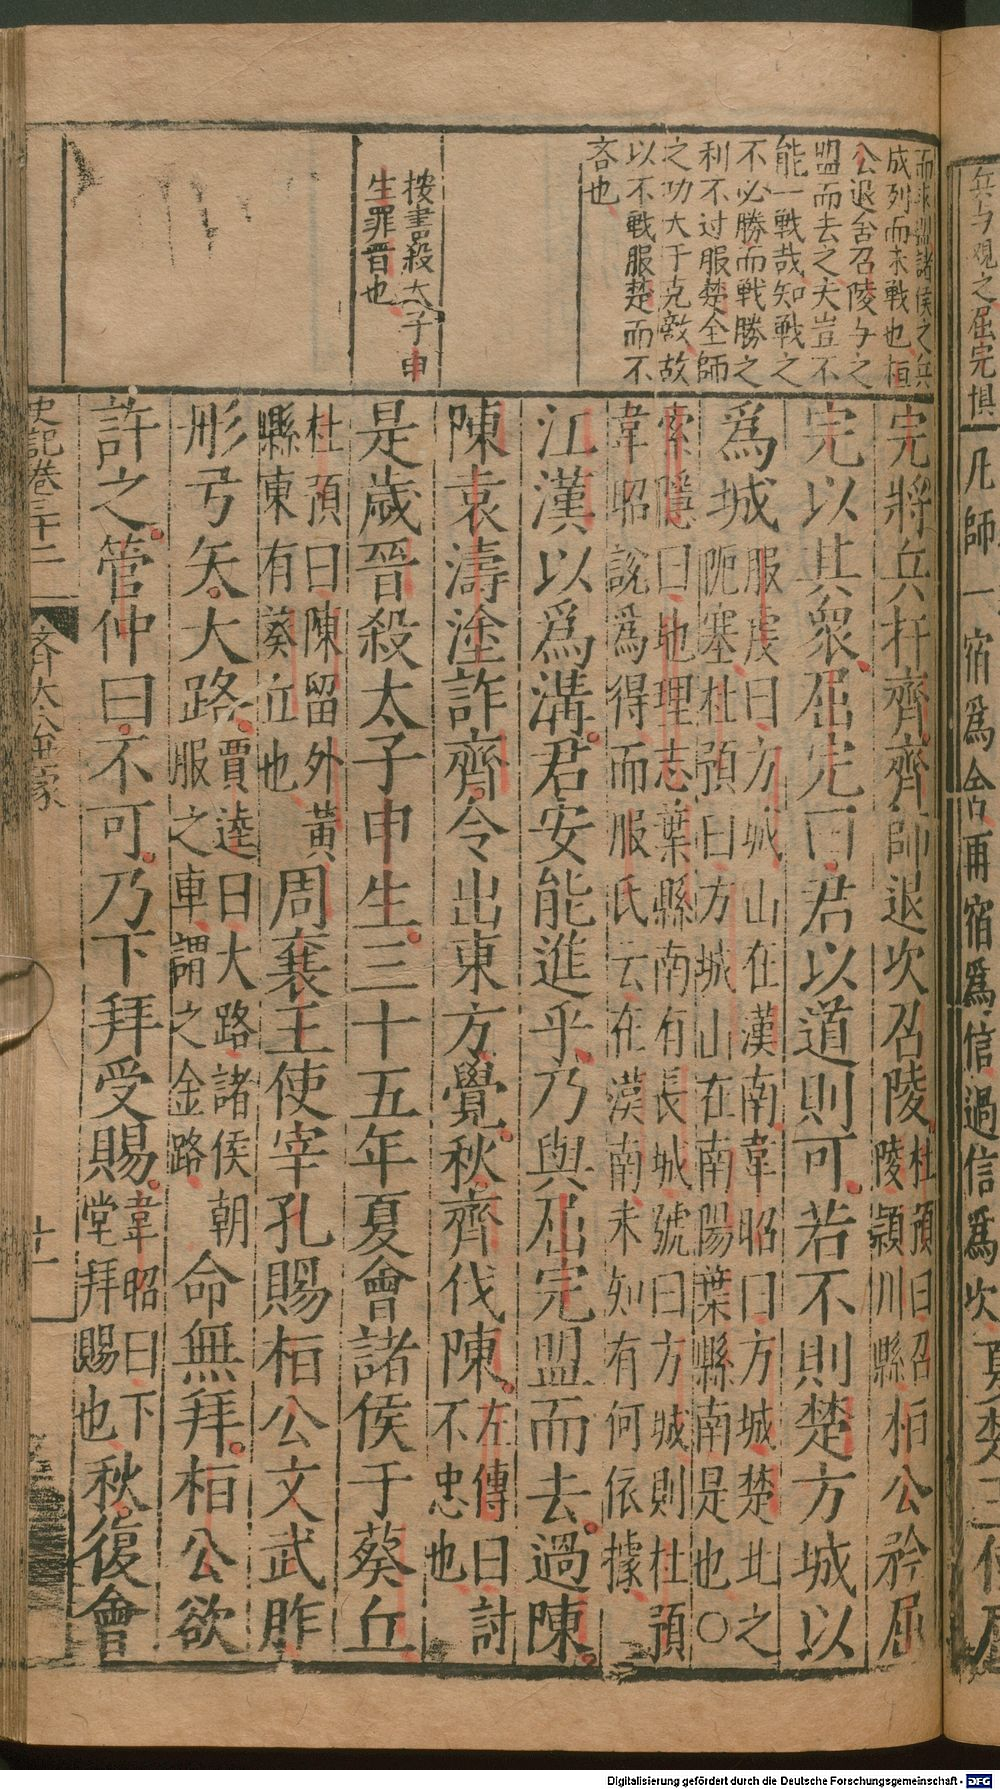 兵与觀之屈完惧
凡師一宿爲舍再宿爲信過信爲次
成列而未戰也桓
公退舍召陵与之
盟而去之夫豈不
能一戰哉知戰之
不必勝而戰勝之
利不过服楚全師
之功大于克敵故
以不戰服楚而不
吝也
按書殺太子申
生罪晋也
完將兵扞齊齊師退次召陵杜預曰召
陵頴川縣桓公矜屈
完以其衆屈完曰君以道則可若不則楚方城以
爲城服虔曰方城山在漢南韋昭曰方城楚北之
阨塞杜預曰方城山在南陽葉縣南是也〇
索隱曰地理志葉縣南有長城號曰方城則杜預
韋昭說爲得而服氏云在漢南未知有何依據
江漢以爲溝君安能進乎乃與屈完盟而去過陳
陳袁濤塗詐齊令出東方覺秋齊伐陳左傳曰討
不忠也
是歲晉殺太子申生三十五年夏會諸侯于葵丘
杜預曰陳留外黃
縣東有葵丘也周襄王使宰孔賜桓公文武胙
彤弓矢大路賈逵曰大路諸侯朝
服之車謂之金路命無拜桓公欲
許之管仲曰不可乃下拜受賜韋昭曰下
堂拜賜也秋復會
史記卷三十二
齊太公世家
十一
Digitalisierung gefördert durch die Deutsche Forschungsgemeinschaft - DFG